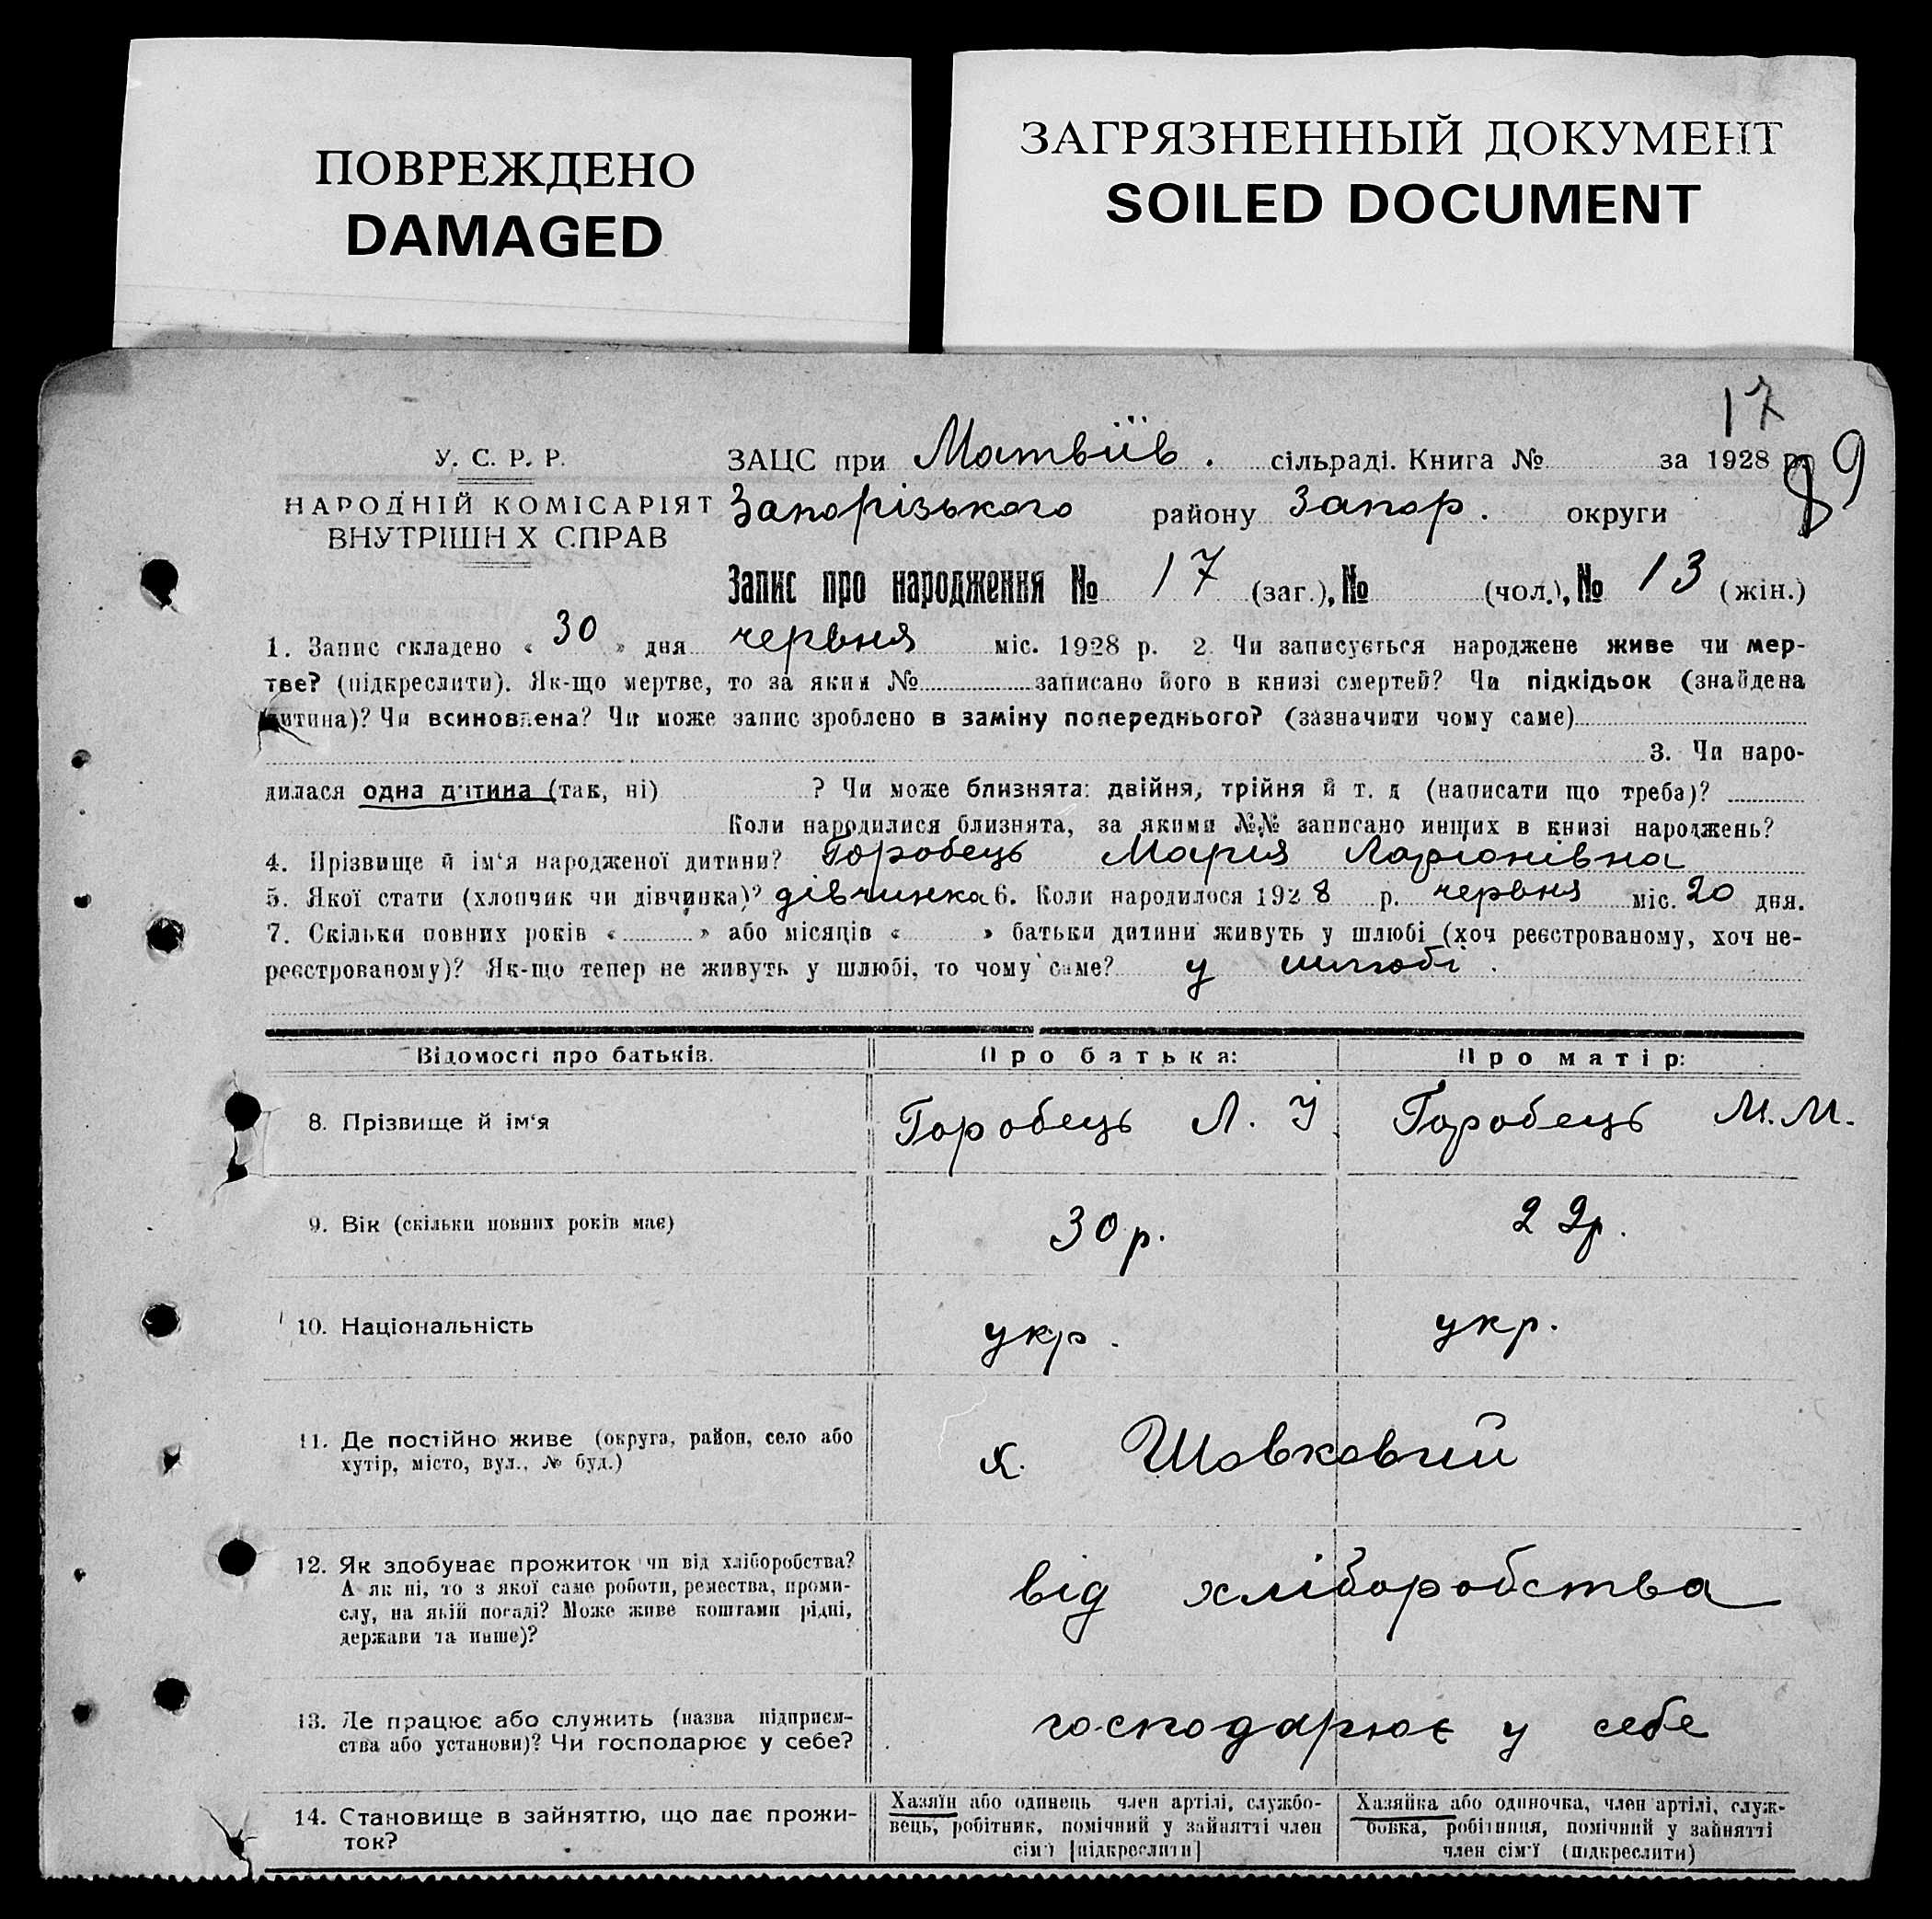 ПОВРЕЖДЕНО
DAMAGED
ЗАГРЯЗНЕННЫЙ ДОКУМЕНТ
SOILED DOCUMENT
17
89
У. С. Р. Р.
НАРОДНІЙ КОМІСАРІЯТ
ВНУТРІШН Х СПРАВ
ЗАЦС при Матвіїв. сільраді. Книга № за 1928 р.
Запорізького району Запор. округи
Запис про народження № 17 (заг.), № (чол.), № 13 (жін.)
1. Запис складено « 30 » дня червня міс. 1928 р. 2. Чи записується народжене живе чи мер-
тве? (підкреслити). Як-що мертве, то за яким № записано його в книзі смертей? Чи підкідьок (знайдена
дитина)? Чи всиновлена? Чи може запис зроблено в заміну попереднього? (зазначити чому саме)
3. Чи наро-
дилася одна дитина (так, ні) ? Чи може близнята: двійня, трійня й т. д (написати що треба)?
Коли народилися близнята, за якими №№ записано инщих в книзі народжень?
4. Прізвище й ім'я народженої дитини? Горобець Марія Ларіонівна
5. Якої стати (хлопчик чи дівчинка)? дівчинка 6. Коли народилося 1928 р. червня міс. 20 дня.
7. Скільки повних років « » або місяців « » батьки дитини живуть у шлюбі (хоч реєстрованому, хоч не-
реєстрованому)? Як-що тепер не живуть у шлюбі, то чому саме? у шлюбі.
Відомості про батьків. Про батька: Про матір:
8. Прізвище й ім'я Горобець Л. І. Горобець М.М.
9. Вік (скільки повних років має) 30 р. 22 р.
10. Національність укр. укр.
11. Де постійно живе (округа, район, село або
хутір, місто, вул., № буд.)
х. Шовковий
12. Як здобуває прожиток чи від хліборобства?
А як ні, то з якої саме роботи, ремества, проми-
слу, на якій посаді? Може живе коштами рідні,
держави та инше)?
від хліборобства
13. Де працює або служить (назва підприєм-
ства або установи)? Чи господарює у себе?
господарює у себе
14. Становище в зайняттю, що дає прожи-
ток?
Хазяїн або одинець член артілі, службо-
вець, робітник, помічний у зайнятті член
сім'ї [підкреслити]
Хазяйка або одиночка, член артілі, служ-
бовка, робітниця, помічний у зайнятті
член сім'ї (підкреслити)